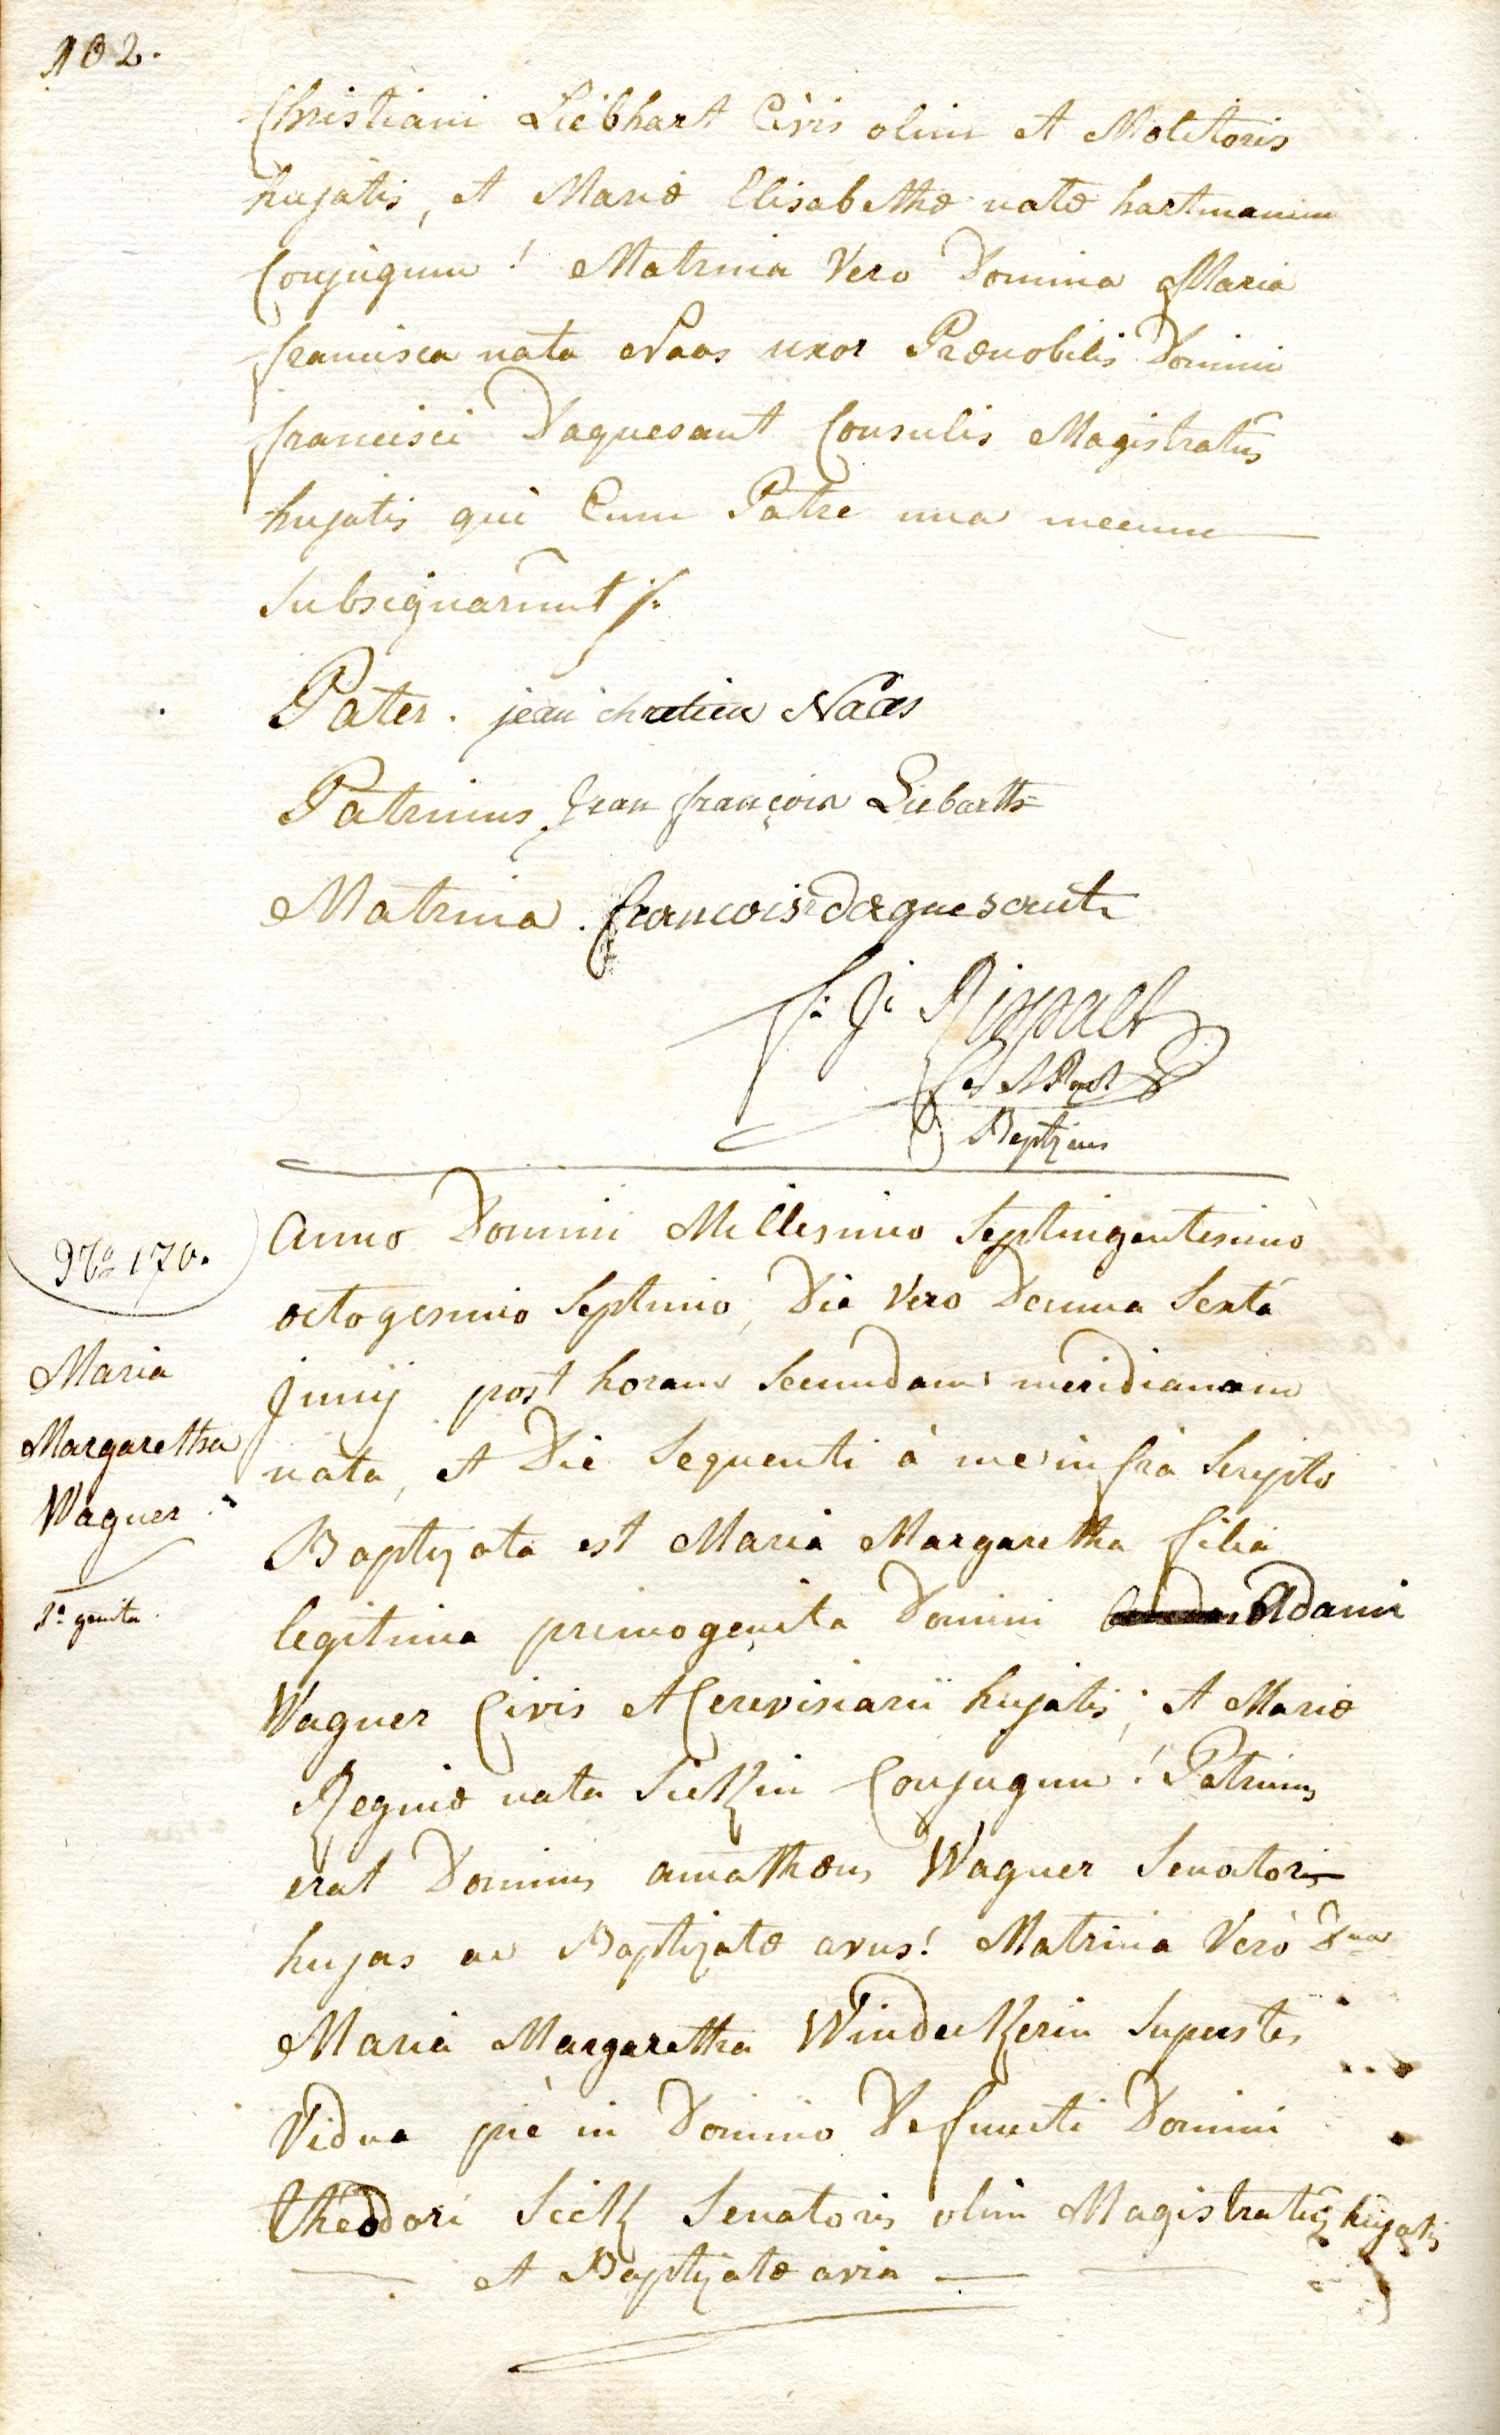 102.
Christiani Liebhart Civis olim et Molitoris
hujatis, et Mariæ Elisabethæ natæ hartmannin
Conjugum! Matrina Vero Domina Maria
francisca nata Naas uxor Prænobilis Domini
francisci Daguesant Consulis Magistratus
hujatis qui Cum Patre una mecum
subsignarunt
Pater. jean chretien Naas
Patrinus Jean françois Liebartt
Matrina. francois daguesant
Baptizans
Anno Domini Millesimo Septingentesimo
octogesimo Septimo, Die Vero Decima Sexta
Junij post horam Secundam meridianam
nata, et Die Sequenti à me infra Scripto
Baptizata est Maria Margaretha filia
legitima primogenita Domini Adami
Wagner Civis et Cerevisiarii hujatis; et Mariæ
Reginæ nata Sickin Conjugum! Patrinus
erat Dominus amathæus Wagner Senatoris
hujas ac Baptizatæ avus! Matrina Verò Dna
Maria Margaretha Windeckerin Superstes
Vidua piè in Domino Defuncti Domini
theodori Sick Senatoris olim Magistratus hujatis
et Baptizatæ avia
No 170.
Maria
Margaretha
Wagner
1a genita.